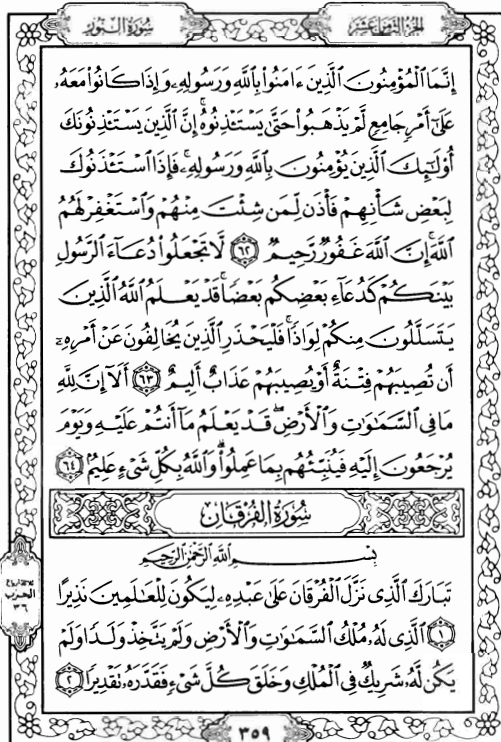 الجزء الثامن عشر
سورة النور
إِنَّمَا ٱلْمُؤْمِنُونَ ٱلَّذِينَ ءَامَنُوا۟ بِٱللَّهِ وَرَسُولِهِۦ وَإِذَا كَانُوا۟ مَعَهُۥ
عَلَىٰٓ أَمْرٍ جَامِعٍ لَّمْ يَذْهَبُوا۟ حَتَّىٰ يَسْتَـْٔذِنُوهُ ۚ إِنَّ ٱلَّذِينَ يَسْتَـْٔذِنُونَكَ
أُو۟لَـٰٓئِكَ ٱلَّذِينَ يُؤْمِنُونَ بِٱللَّهِ وَرَسُولِهِۦ ۚ فَإِذَا ٱسْتَـْٔذَنُوكَ
لِبَعْضِ شَأْنِهِمْ فَأْذَن لِّمَن شِئْتَ مِنْهُمْ وَٱسْتَغْفِرْ لَهُمُ
ٱللَّهَ ۚ إِنَّ ٱللَّهَ غَفُورٌ رَّحِيمٌ ٦٢ لَّا تَجْعَلُوا۟ دُعَآءَ ٱلرَّسُولِ
بَيْنَكُمْ كَدُعَآءِ بَعْضِكُم بَعْضًا ۚ قَدْ يَعْلَمُ ٱللَّهُ ٱلَّذِينَ
يَتَسَلَّلُونَ مِنكُمْ لِوَاذًا ۚ فَلْيَحْذَرِ ٱلَّذِينَ يُخَالِفُونَ عَنْ أَمْرِهِۦٓ
أَن تُصِيبَهُمْ فِتْنَةٌ أَوْ يُصِيبَهُمْ عَذَابٌ أَلِيمٌ ٦٣ أَلَآ إِنَّ لِلَّهِ
مَا فِى ٱلسَّمَـٰوَٰتِ وَٱلْأَرْضِ ۖ قَدْ يَعْلَمُ مَآ أَنتُمْ عَلَيْهِ وَيَوْمَ
يُرْجَعُونَ إِلَيْهِ فَيُنَبِّئُهُم بِمَا عَمِلُوا۟ ۗ وَٱللَّهُ بِكُلِّ شَىْءٍ عَلِيمٌۢ ٦٤
سورة الفرقان
بِسْمِ ٱللَّهِ ٱلرَّحْمَـٰنِ ٱلرَّحِيمِ
تَبَارَكَ ٱلَّذِى نَزَّلَ ٱلْفُرْقَانَ عَلَىٰ عَبْدِهِۦ لِيَكُونَ لِلْعَـٰلَمِينَ نَذِيرًا
١ ٱلَّذِى لَهُۥ مُلْكُ ٱلسَّمَـٰوَٰتِ وَٱلْأَرْضِ وَلَمْ يَتَّخِذْ وَلَدًا وَلَمْ
يَكُن لَّهُۥ شَرِيكٌ فِى ٱلْمُلْكِ وَخَلَقَ كُلَّ شَىْءٍ فَقَدَّرَهُۥ تَقْدِيرًا ٢
ثلاثة أرباع
الحزب
٣٦
٣٥٩